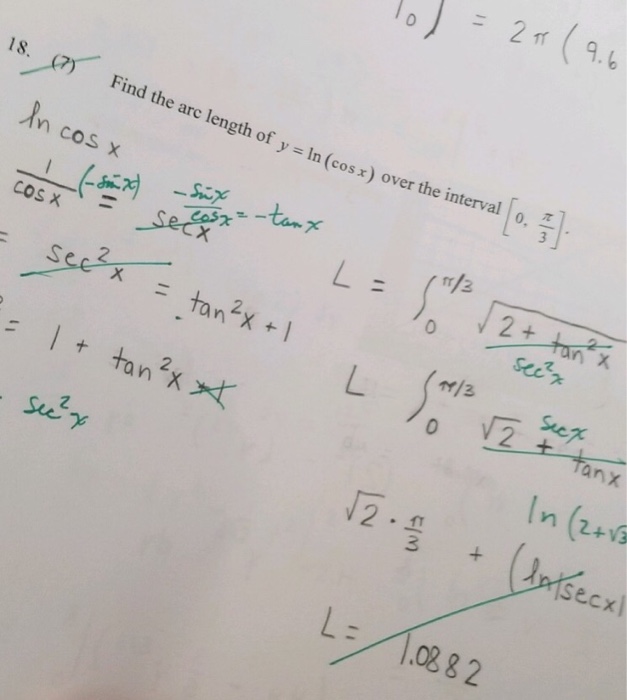 = 2π ( 9.6
18. (7) Find the arc length of y = ln (cos x) over the interval [0, π/3].
ln cos x
1/cos x (-sin x) = -sin x/cos x = -tan x
sec x
sec² x = tan² x + 1
= 1 + tan² x + 1
sec² x
L = ∫₀^π/3 √2 + tan² x
sec² x
L ∫₀^π/3 √2 + tan x
sec x
√2 · π/3 + (ln|sec x|
ln (2+√3
L = 1.0882